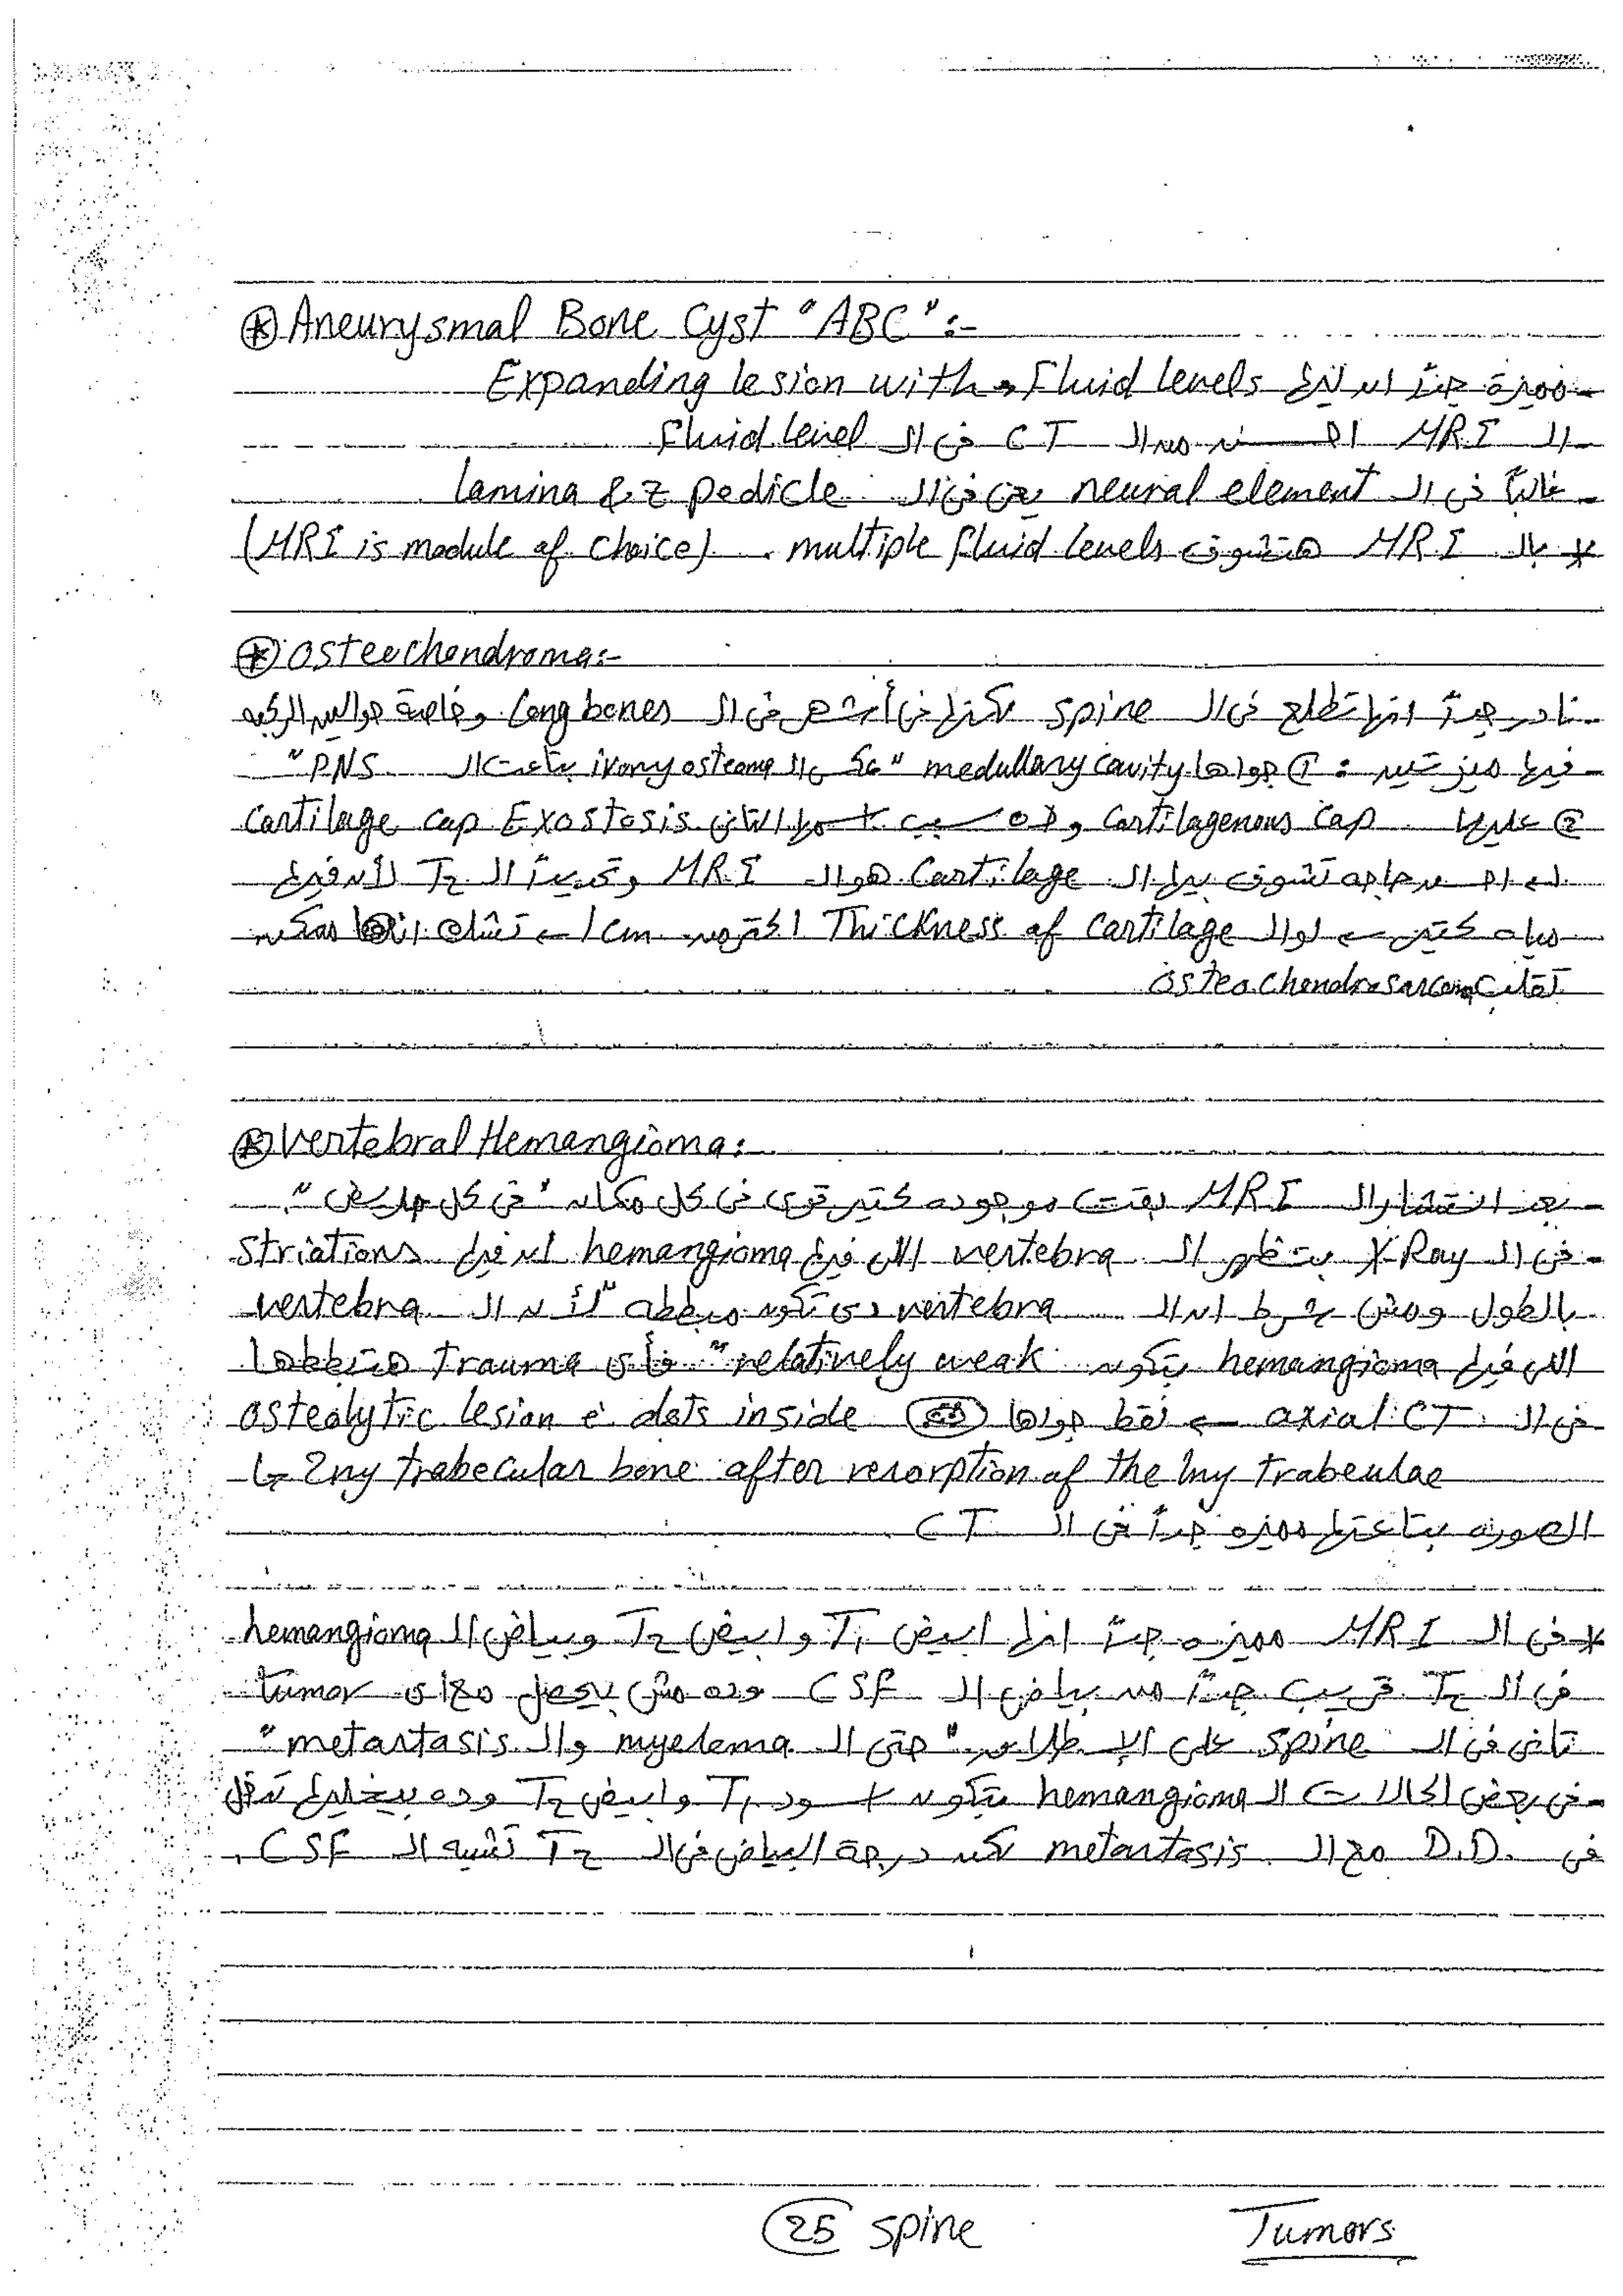 * Aneurysmal Bone Cyst "ABC" :-
- مميزة جداً ان ليها Expanding lesion with → Fluid levels
- الـ MRI احسن من الـ CT فى الـ Fluid level
- غالباً فى الـ neural element يعنى فى الـ lamina & pedicle
* بالـ MRI هتشوف multiple fluid levels . (MRI is module of choice)
* Osteochondroma:-
- نادر جداً انها تطلع فى الـ spine لكنها أشهر فى الـ Long bones وخاصة حوالين الركبه
- فيها ميزتين : ① جواها medullary cavity "عكس الـ ivory osteoma بتاعت الـ PNS"
② عليها Cartilagenous Cap وده سبب اسمها التانى Cartilage Cap Exostosis
احسن حاجه تشوف بيها الـ Cartilage هو الـ MRI وتحديداً الـ T2 لأن فيها
مياه كتير ← لو الـ Thickness of cartilage اكتر من 1 cm ← تشك انها ممكن
تقلب osteochondrosarcoma
* Vertebral Hemangioma:
- بعد انتشار الـ MRI بقت موجوده كتير قوى فى كل مكان "فى كل مريض"
- فى الـ X Ray بتظهر الـ vertebra اللى فيها hemangioma ان فيها striations
بالطول ومش شرط ان الـ vertebra دى تكون مبططه "لأن الـ vertebra
اللى فيها hemangioma بتكون relatively weak" فأى trauma هتبططها
فى الـ axial CT ← نقط جواها osteolytic lesion ē dots inside
↳ 2ny trabecular bone after resorption of the 1ny trabeulae
الصوره بتاعتها مميزه جداً فى الـ CT
* فى الـ MRI مميزه جداً انها ابيض T1 وابيض T2 وبياض الـ hemangioma
فى الـ T2 قريب جداً من بياض الـ CSF وده مش بيحصل مع اى tumor
تانى فى الـ spine على الإطلاق "حتى الـ myeloma والـ metastasis"
- فى بعض الحالات الـ hemangioma بتكون اسود T1 وابيض T2 وده بيخليها تدخل
فى D.D. مع الـ metastasis لكن درجة البياض فى الـ T2 تشبه الـ CSF.
25 spine
Tumors